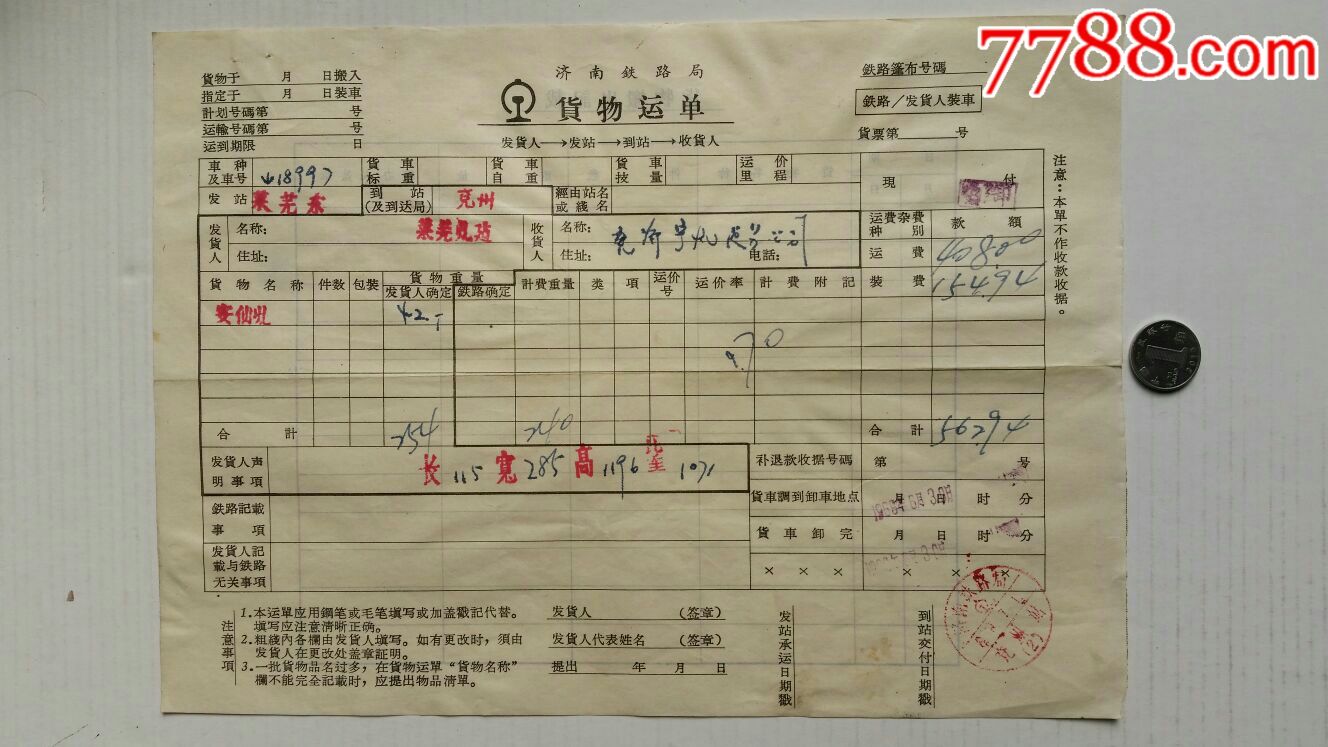 7788.com
貨物于 月 日搬入
指定于 月 日装車
計划号碼第 号
运輸号碼第 号
运到期限 日
济南鉄路局
貨物运单
发貨人→发站→到站→收貨人
鉄路篷布号碼
鉄路/发貨人装車
貨票第 号
車种及車号 18997 貨車标重 貨車自重 貨車技量 运价里程 現付
发站 莱芜东 到站(及到达局) 兖州 經由站名或綫名
发貨人 名称: 收貨人 名称: 运費杂費种別 款額
住址: 住址: 电話: 运費 40800
貨物名称 件数 包装 貨物重量 发貨人确定 鉄路确定 計費重量 类項 运价号 运价率 計費附記 装費 15494
42T
9.70
合計 254 240 合計 56294
发貨人声明事項 长 115 寬 285 高 1196 1071 补退款收据号碼 第 号
鉄路記載事項 貨車調到卸車地点 月 日 时 分
貨車卸完 月 日 时 分
发貨人記載与鉄路无关事項 × × × × × ×
注意:本單不作收款收据。
注意事項
1.本运單应用鋼笔或毛笔填写或加盖戳記代替。
填写应注意清晰正确。
2.粗綫內各欄由发貨人填写。如有更改时,須由
发貨人在更改处盖章証明。
3.一批貨物品名过多,在貨物运單“貨物名称”
欄不能完全記載时,应提出物品清單。
发貨人 (签章)
发貨人代表姓名 (签章)
提出 年 月 日
发站承运日期戳
到站交付日期戳